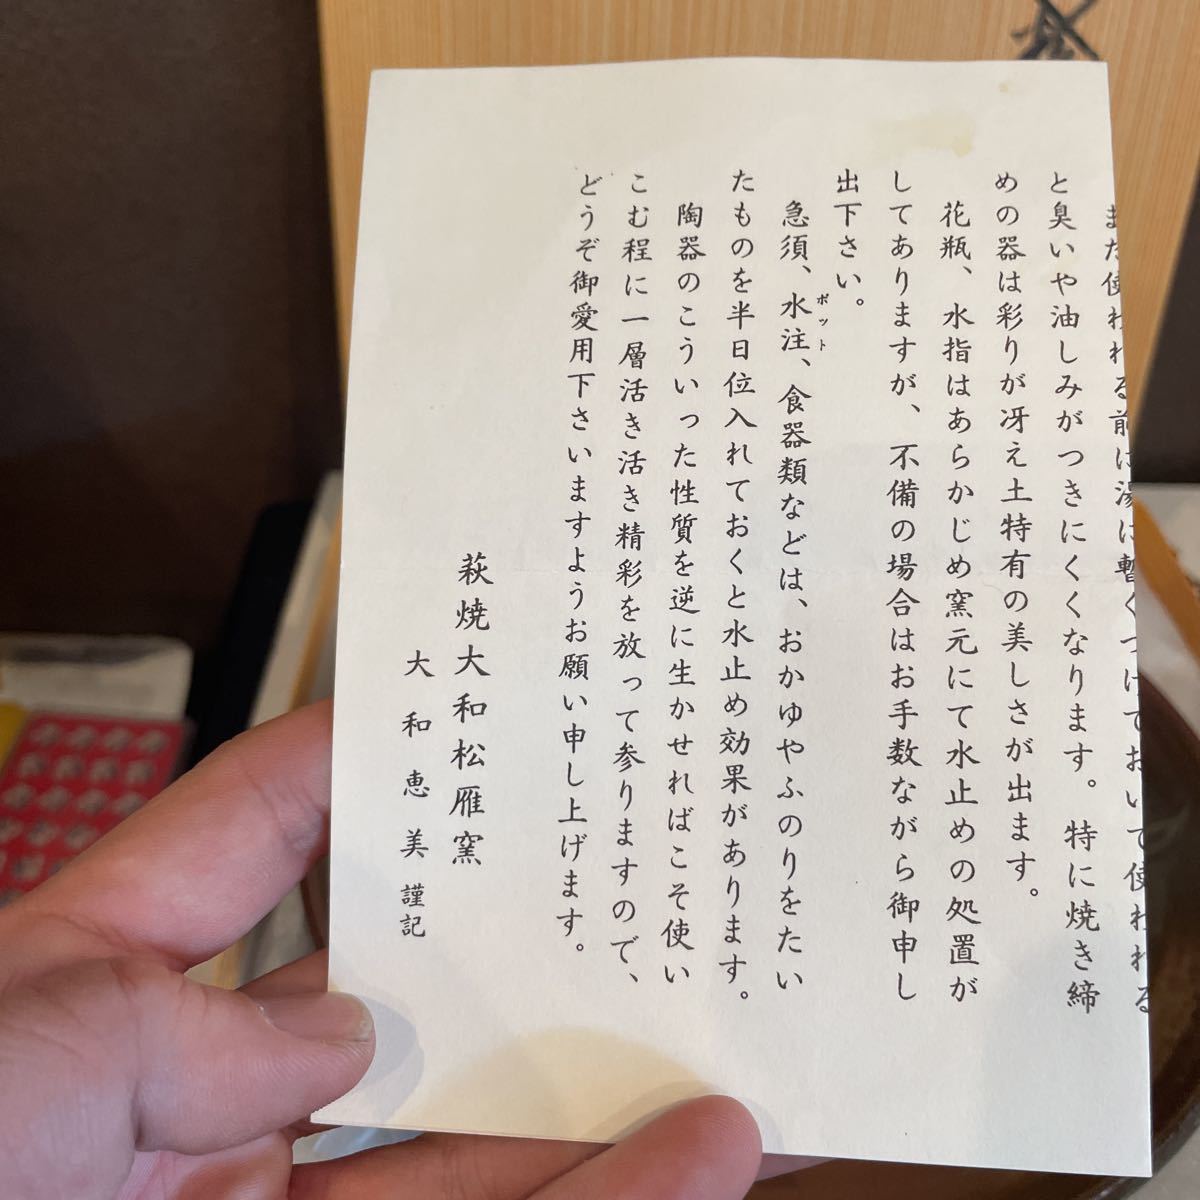 また使われる前に湯に暫くつけておいて使われる
と臭いや油しみがつきにくくなります。特に焼き締
めの器は彩りが冴え土特有の美しさが出ます。
花瓶、水指はあらかじめ窯元にて水止めの処置が
してありますが、不備の場合はお手数ながら御申し
出下さい。
急須、水注、食器類などは、おかゆやふのりをたい
ポット
たものを半日位入れておくと水止め効果があります。
陶器のこういった性質を逆に生かせればこそ使い
こむ程に一層活き活き精彩を放って参りますので、
どうぞ御愛用下さいますようお願い申し上げます。
萩焼大和松雁窯
大和恵美謹記